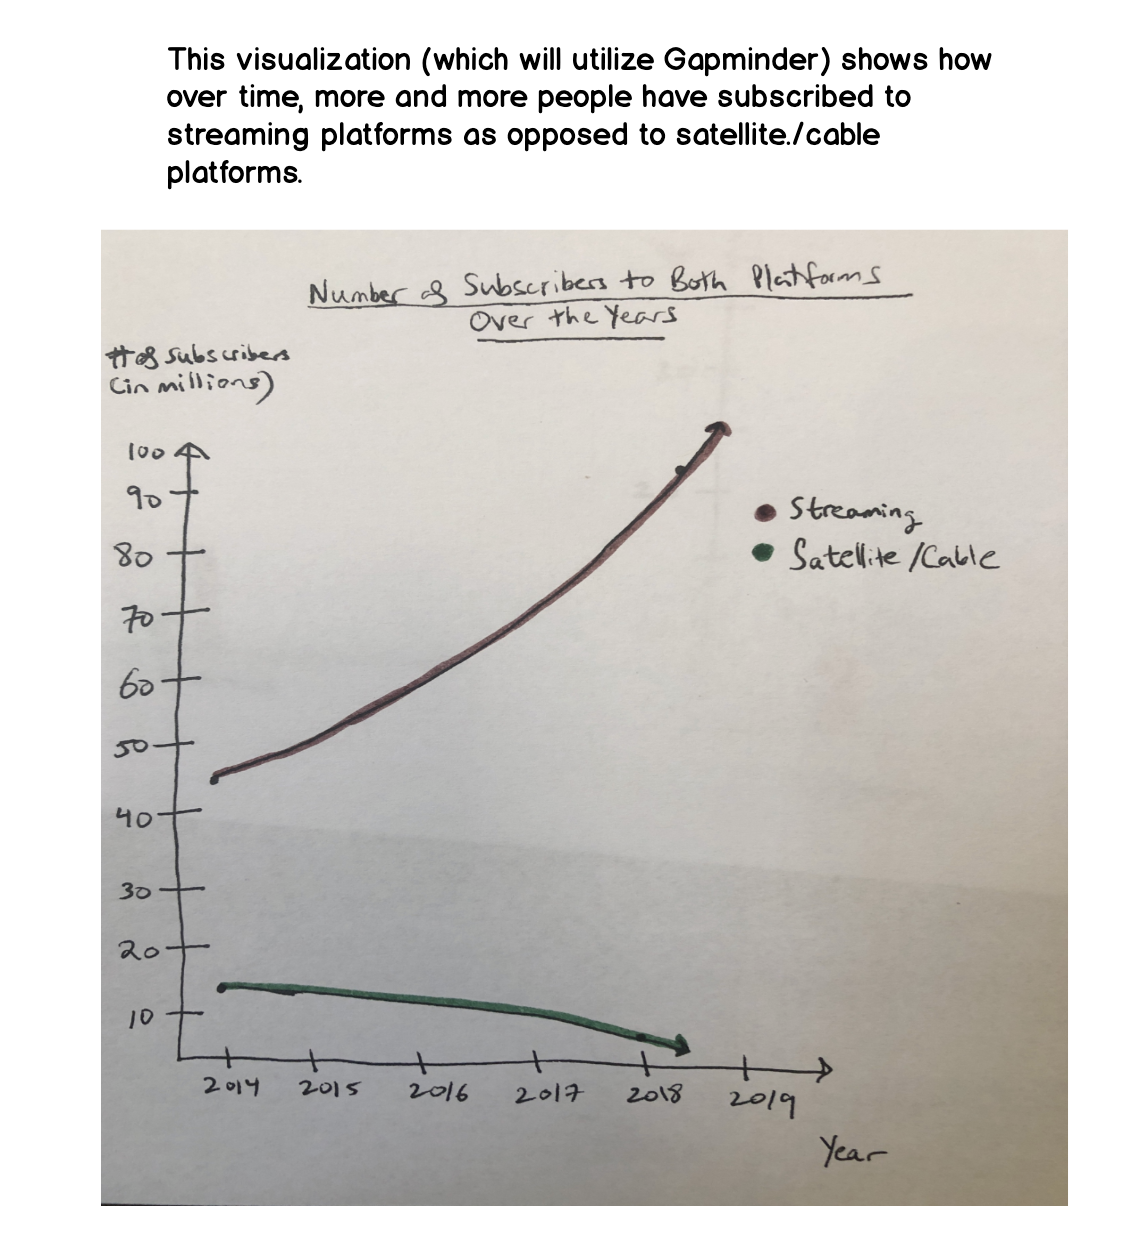 This visualization (which will utilize Gapminder) shows how
over time, more and more people have subscribed to
streaming platforms as opposed to satellite./cable
platforms.
Number of Subscribers to Both Platforms
Over the Years
# of subscribers
(in millions)
100
90
80
70
60
50
40
30
20
10
Streaming
Satellite/Cable
2014 2015 2016 2017 2018 2019
Year